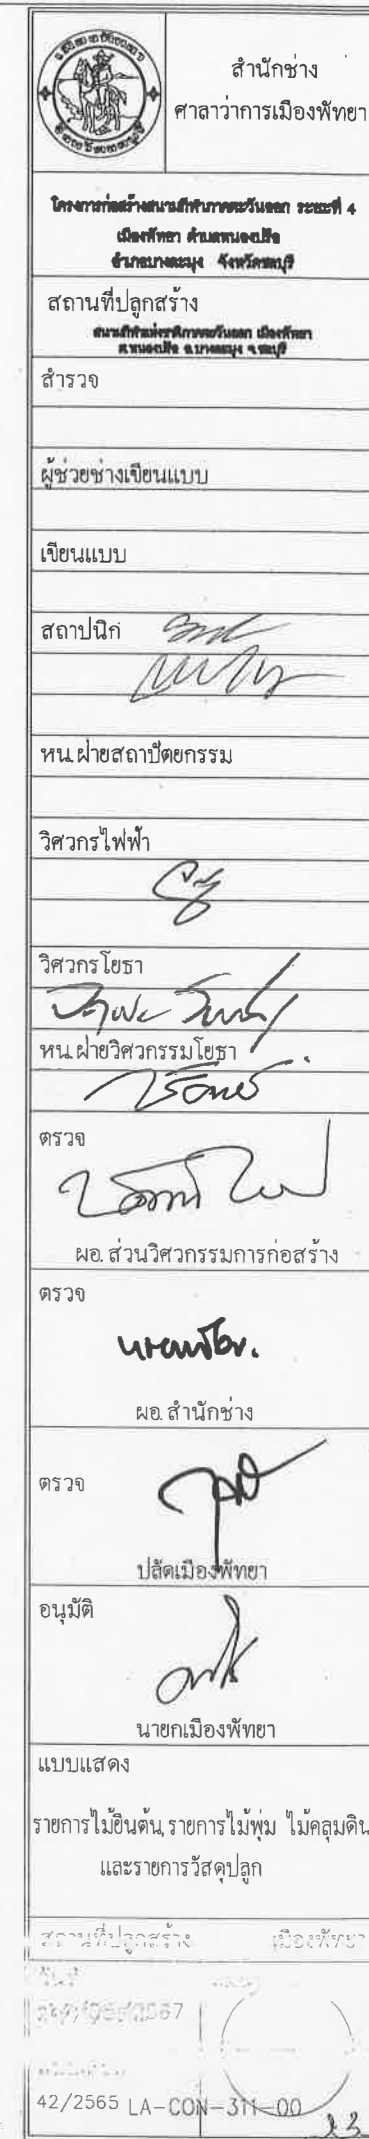 สำนักช่าง
ศาลาว่าการเมืองพัทยา
โครงการก่อสร้างสนามกีฬาภาคตะวันออก ระยะที่ 4
เมืองพัทยา ตำบลหนองปรือ
อำเภอบางละมุง จังหวัดชลบุรี
สถานที่ปลูกสร้าง
สนามกีฬาแห่งชาติภาคตะวันออก เมืองพัทยา
ต.หนองปรือ อ.บางละมุง จ.ชลบุรี
สำรวจ
ผู้ช่วยช่างเขียนแบบ
เขียนแบบ
สถาปนิก
หน.ฝ่ายสถาปัตยกรรม
วิศวกรไฟฟ้า
วิศวกรโยธา
หน.ฝ่ายวิศวกรรมโยธา
ตรวจ
ผอ.ส่วนวิศวกรรมการก่อสร้าง
ตรวจ
ผอ.สำนักช่าง
ตรวจ
ปลัดเมืองพัทยา
อนุมัติ
นายกเมืองพัทยา
แบบแสดง
รายการไม้ยืนต้น, รายการไม้พุ่ม ไม้คลุมดิน
และรายการวัสดุปลูก
สถานที่ปลูกสร้าง เมืองพัทยา
วันที่
42/2565 LA-CON-311-00